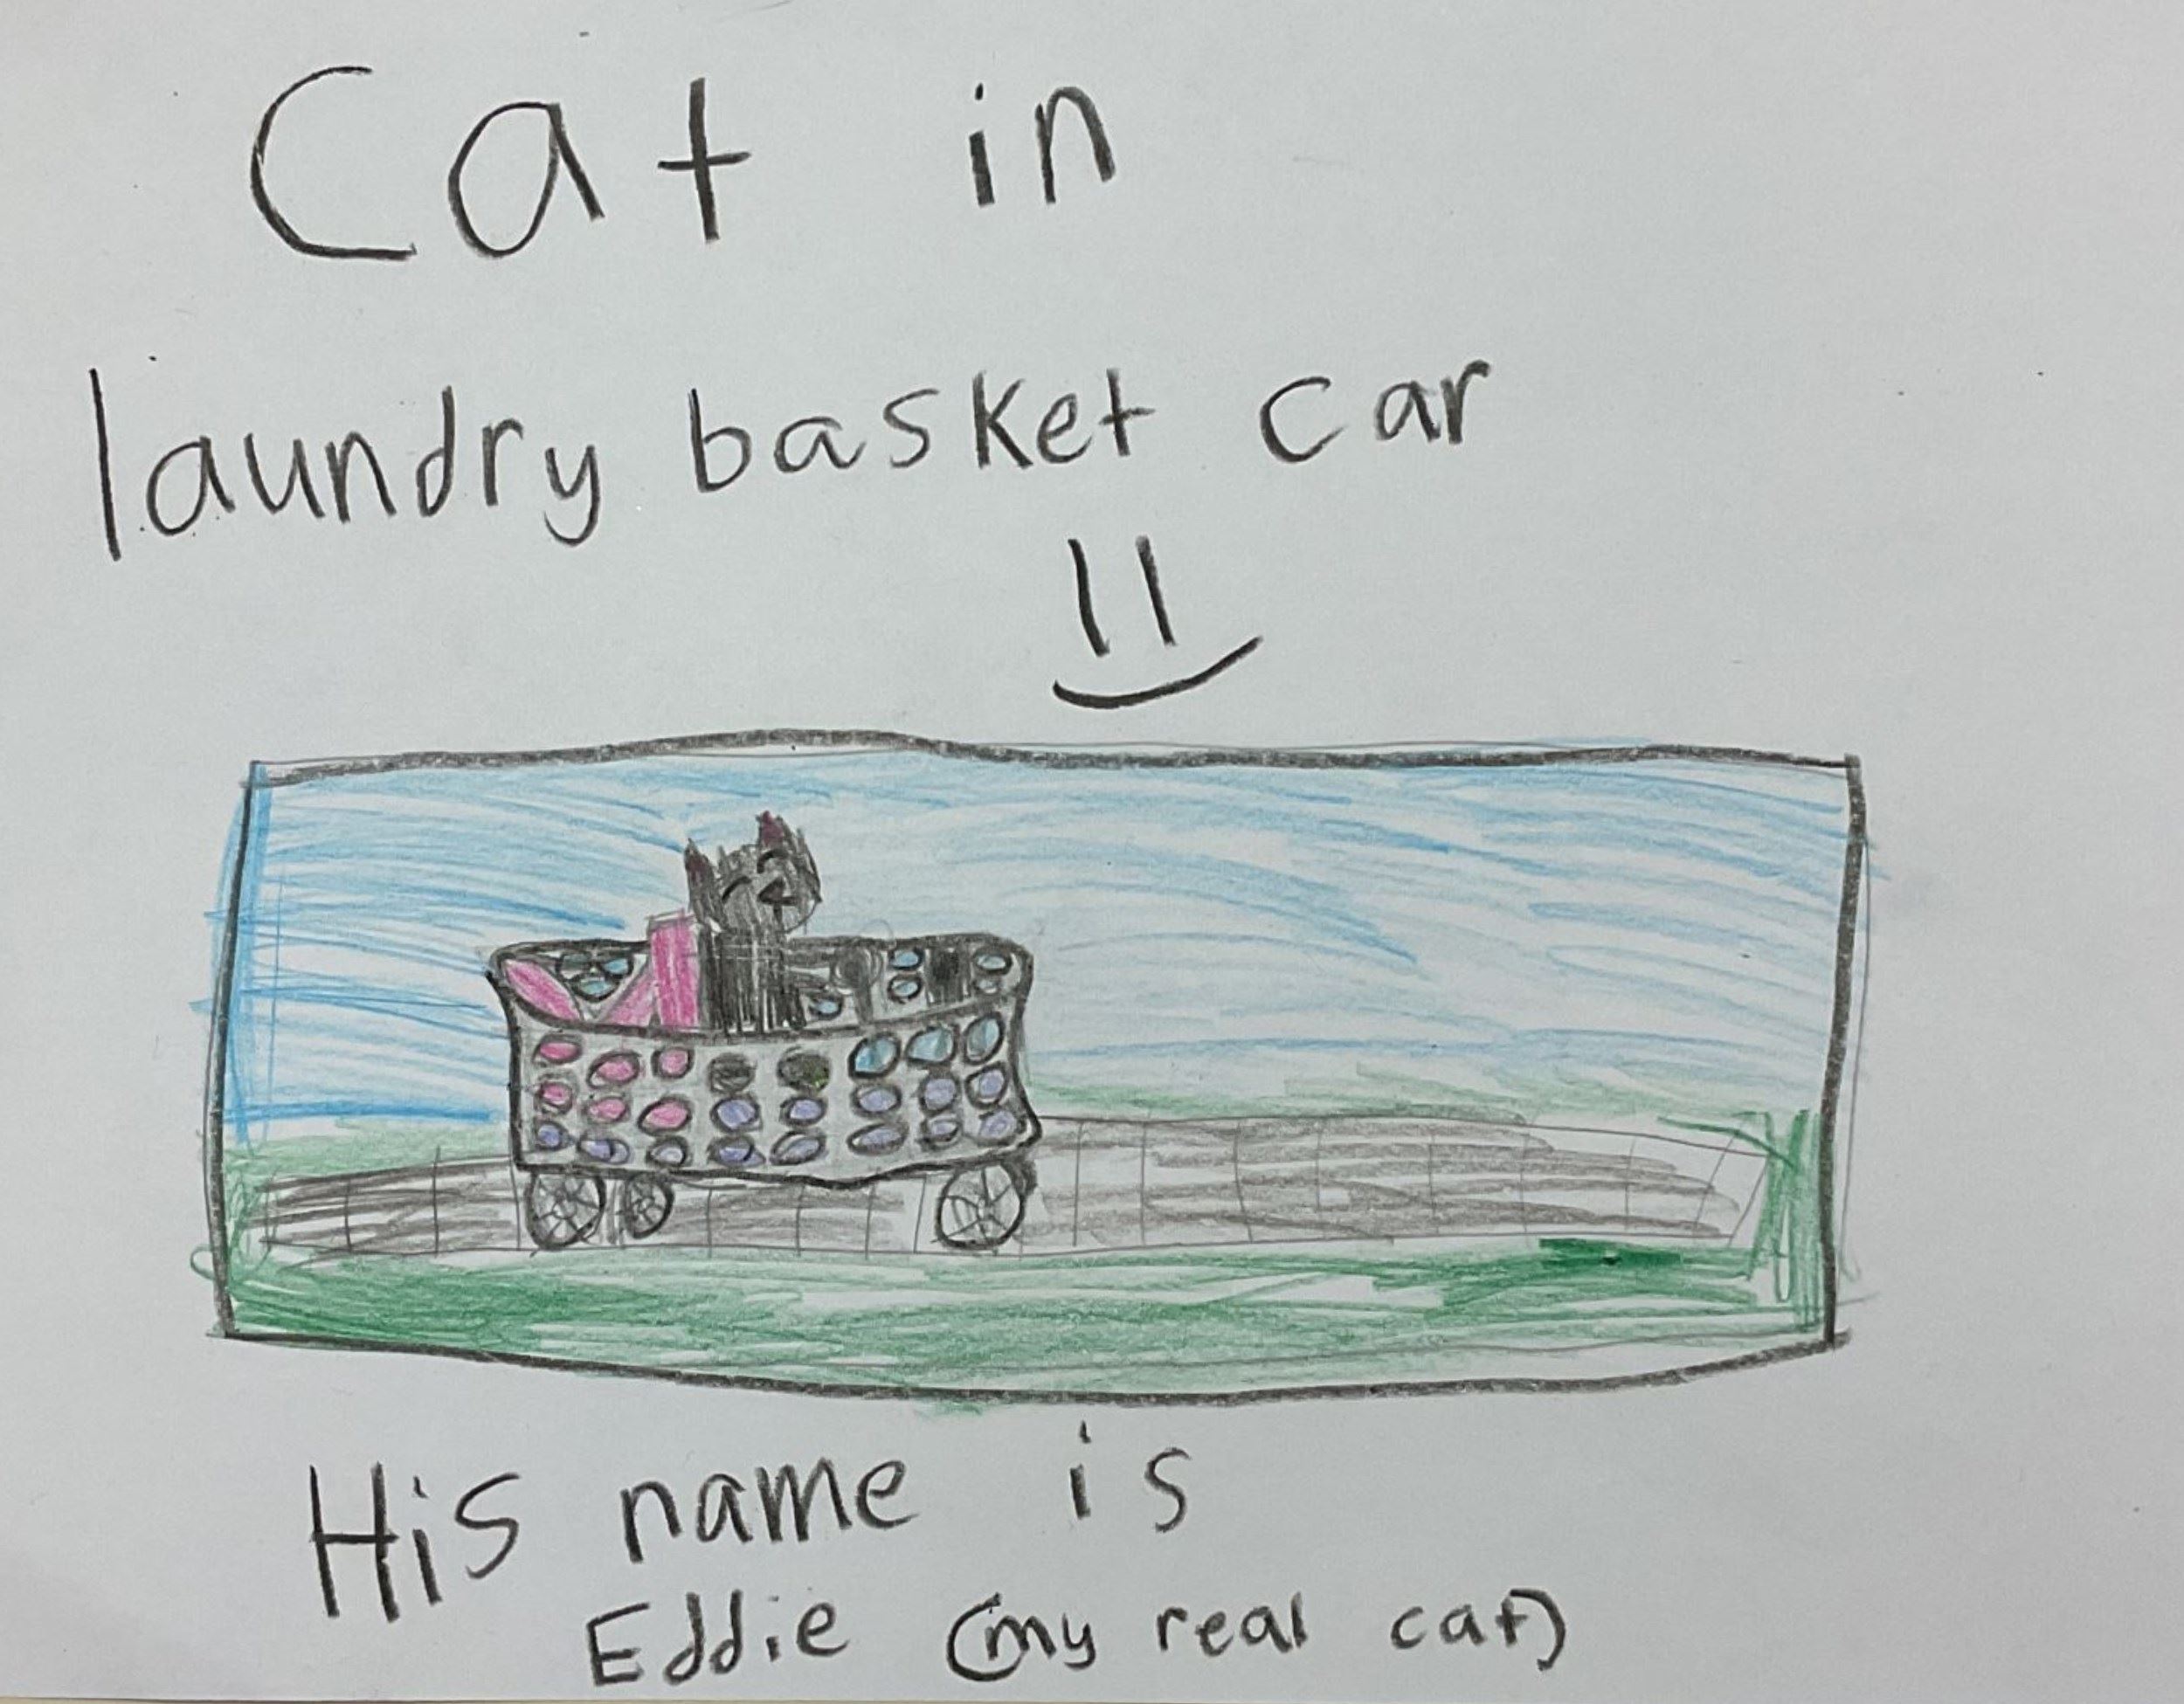 Cat in
laundry basket car
His name is
Eddie (my real cat)